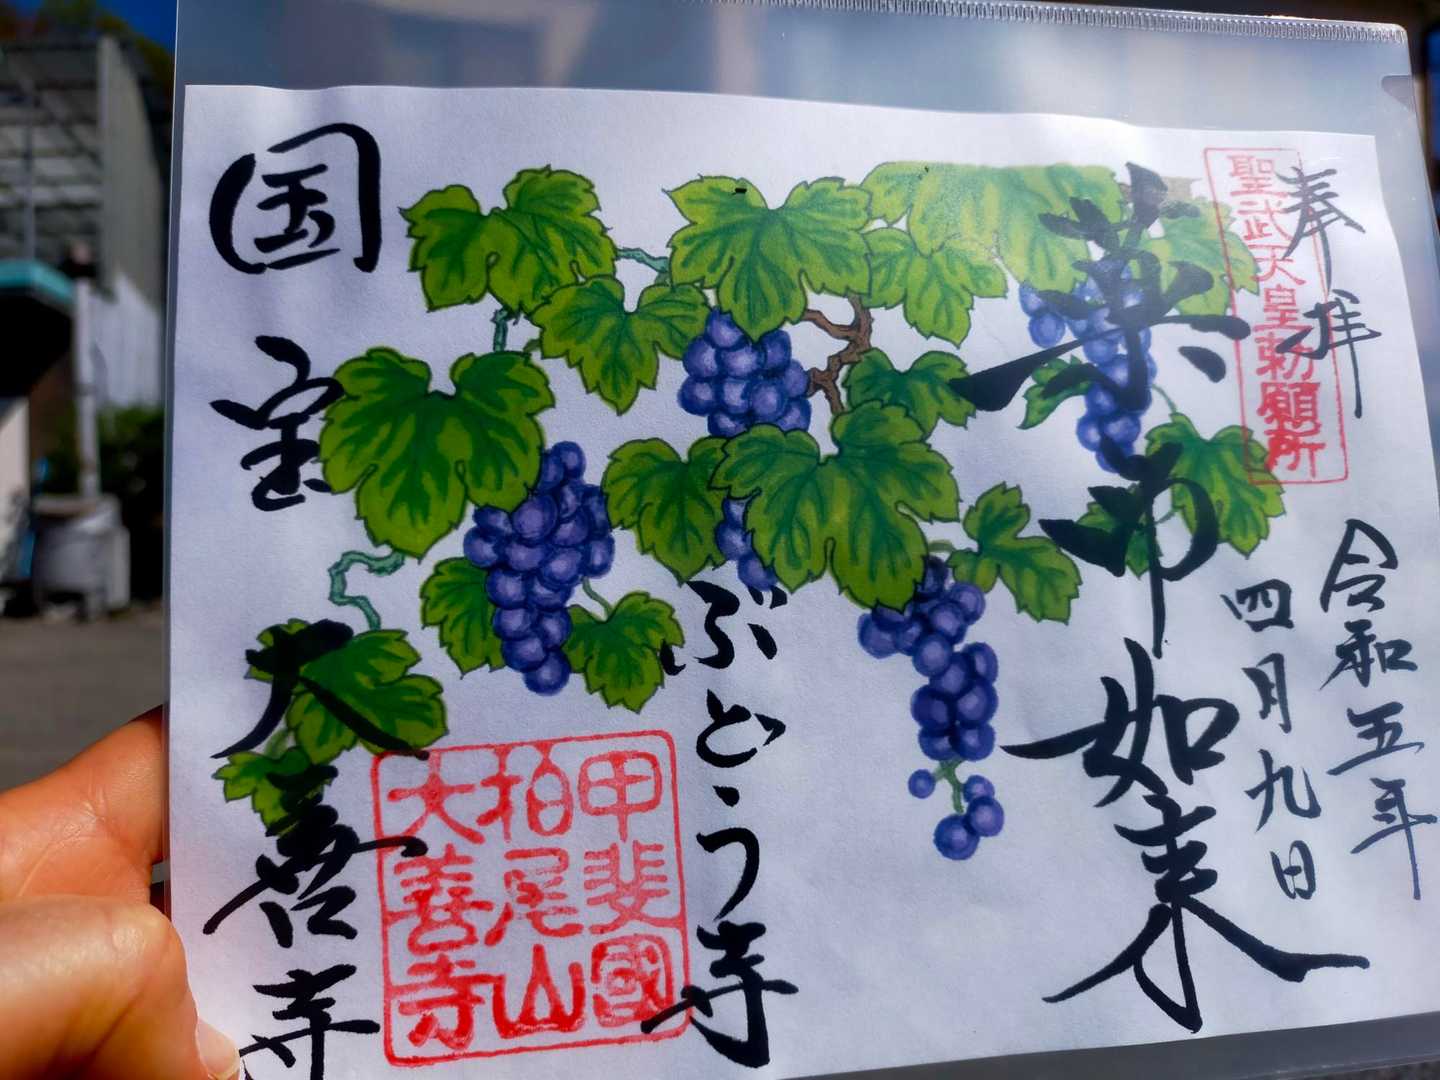 奉拝
聖武天皇勅願所
令和五年
四月九日
薬師如来
ぶどう寺
甲斐國
柏尾山
大善寺
国宝 大善寺